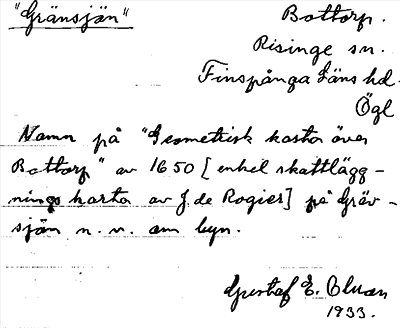 "Gränsjän"
Bottorp.
Risinge sn.
Finspånga Läns hd.
Ögl
Namn på "Geometrisk karta över
Bottorp" av 1650 [enkel skattlägg-
nings karta av J. de Rogier] på Gräv-
sjän n. v. om byn.
Gustaf E.
1933.